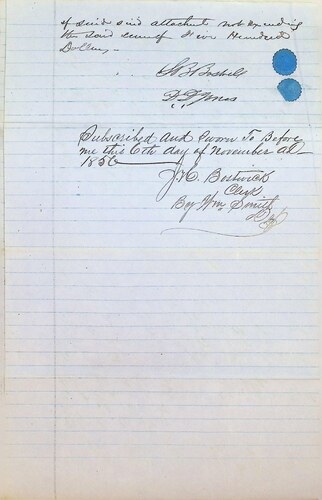 of said attachment not exceeding
the said sum of Five Hundred
Dollars —
Subscribed and Sworn To Before
me this 6th day of November AD
1856
J. C. Bostwick
Clerk
By Wm Smith